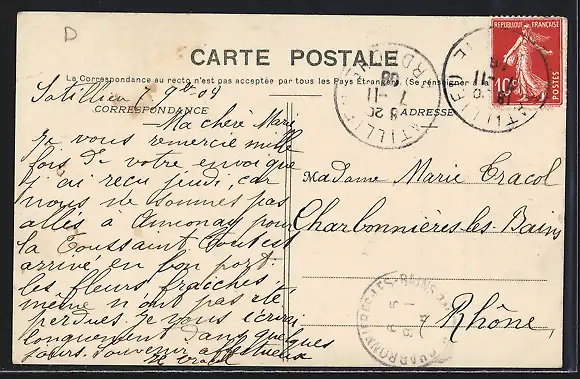 D
CARTE POSTALE
La Correspondance au recto n'est pas acceptée par tous les Pays Étrangers. (Se renseigner à la
CORRESPONDANCE
ADRESSE
REPUBLIQUE FRANÇAISE
10c
POSTES
SATILLIEU
7 - 11
08
Satillieu 7 9bre 09
Ma chere Marie
Je vous remercie mille
fois de votre envoi que
j'ai recu jeudi, car
nous ne sommes pas
allés à Annonay pour
la Toussaint. Tout est
arrivé en bon port
les fleurs fraiches
même n'ont pas été
perdues. Je vous écrirai
longuement dans quelques
jours. Souvenir affectueux
M Cracol
Madame Marie Cracol
Charbonnières les Bains
Rhône
CHARBONNIERES-LES-BAINS